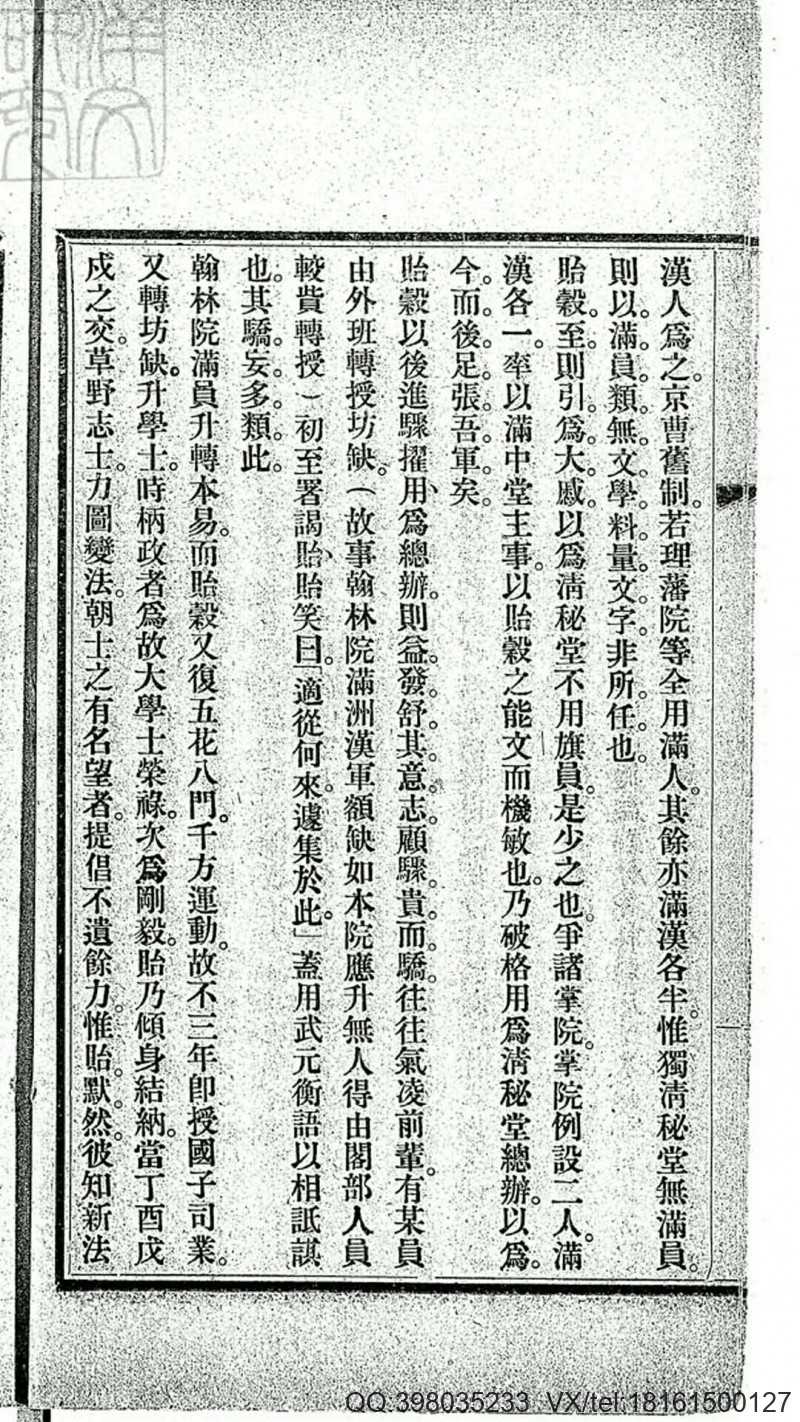 漢人爲之。京曹舊制。若理藩院等全用滿人。其餘亦滿漢各半。惟獨淸秘堂無滿員。
則以。滿員。類無文學。料量。文字。非所。任也。
貽穀。至。則引。爲大。慼。以爲淸秘堂不用旗員。是少之也。爭諸掌院。掌院例設二人。滿
漢各一。率以滿中堂主事。以貽穀之能文而機敏也。乃破格用爲淸秘堂總辦。以爲。
今。而後。足。張。吾。軍。矣。
貽穀以後進驟擢用爲總辦。則益。發。舒。其。意。志。顧驟。貴。而。驕。往往氣凌前輩。有某員
由外班轉授坊缺。(故事翰林院滿洲漢軍額缺如本院應升無人得由閣部人員
較貲轉授)初至署謁貽、貽笑曰。「適從何來。遽集於此。」蓋用武元衡語以相詆諆
也。其驕。妄。多。類。此。
翰林院滿員升轉本易。而貽穀又復五花八門。千方運動。故不三年卽授國子司業。
又轉坊缺。升學士。時柄政者爲故大學士榮祿。次爲剛毅。貽乃傾身結納。當丁酉戊
戌之交。草野志士。力圖變法。朝士之有名望者。提倡不遺餘力。惟貽。默。然。彼知新法
QQ:398035233 VX/tel:18161500127